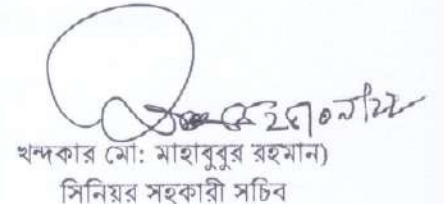 খন্দকার মো: মাহাবুবুর রহমান)
সিনিয়র সহকারী সচিব